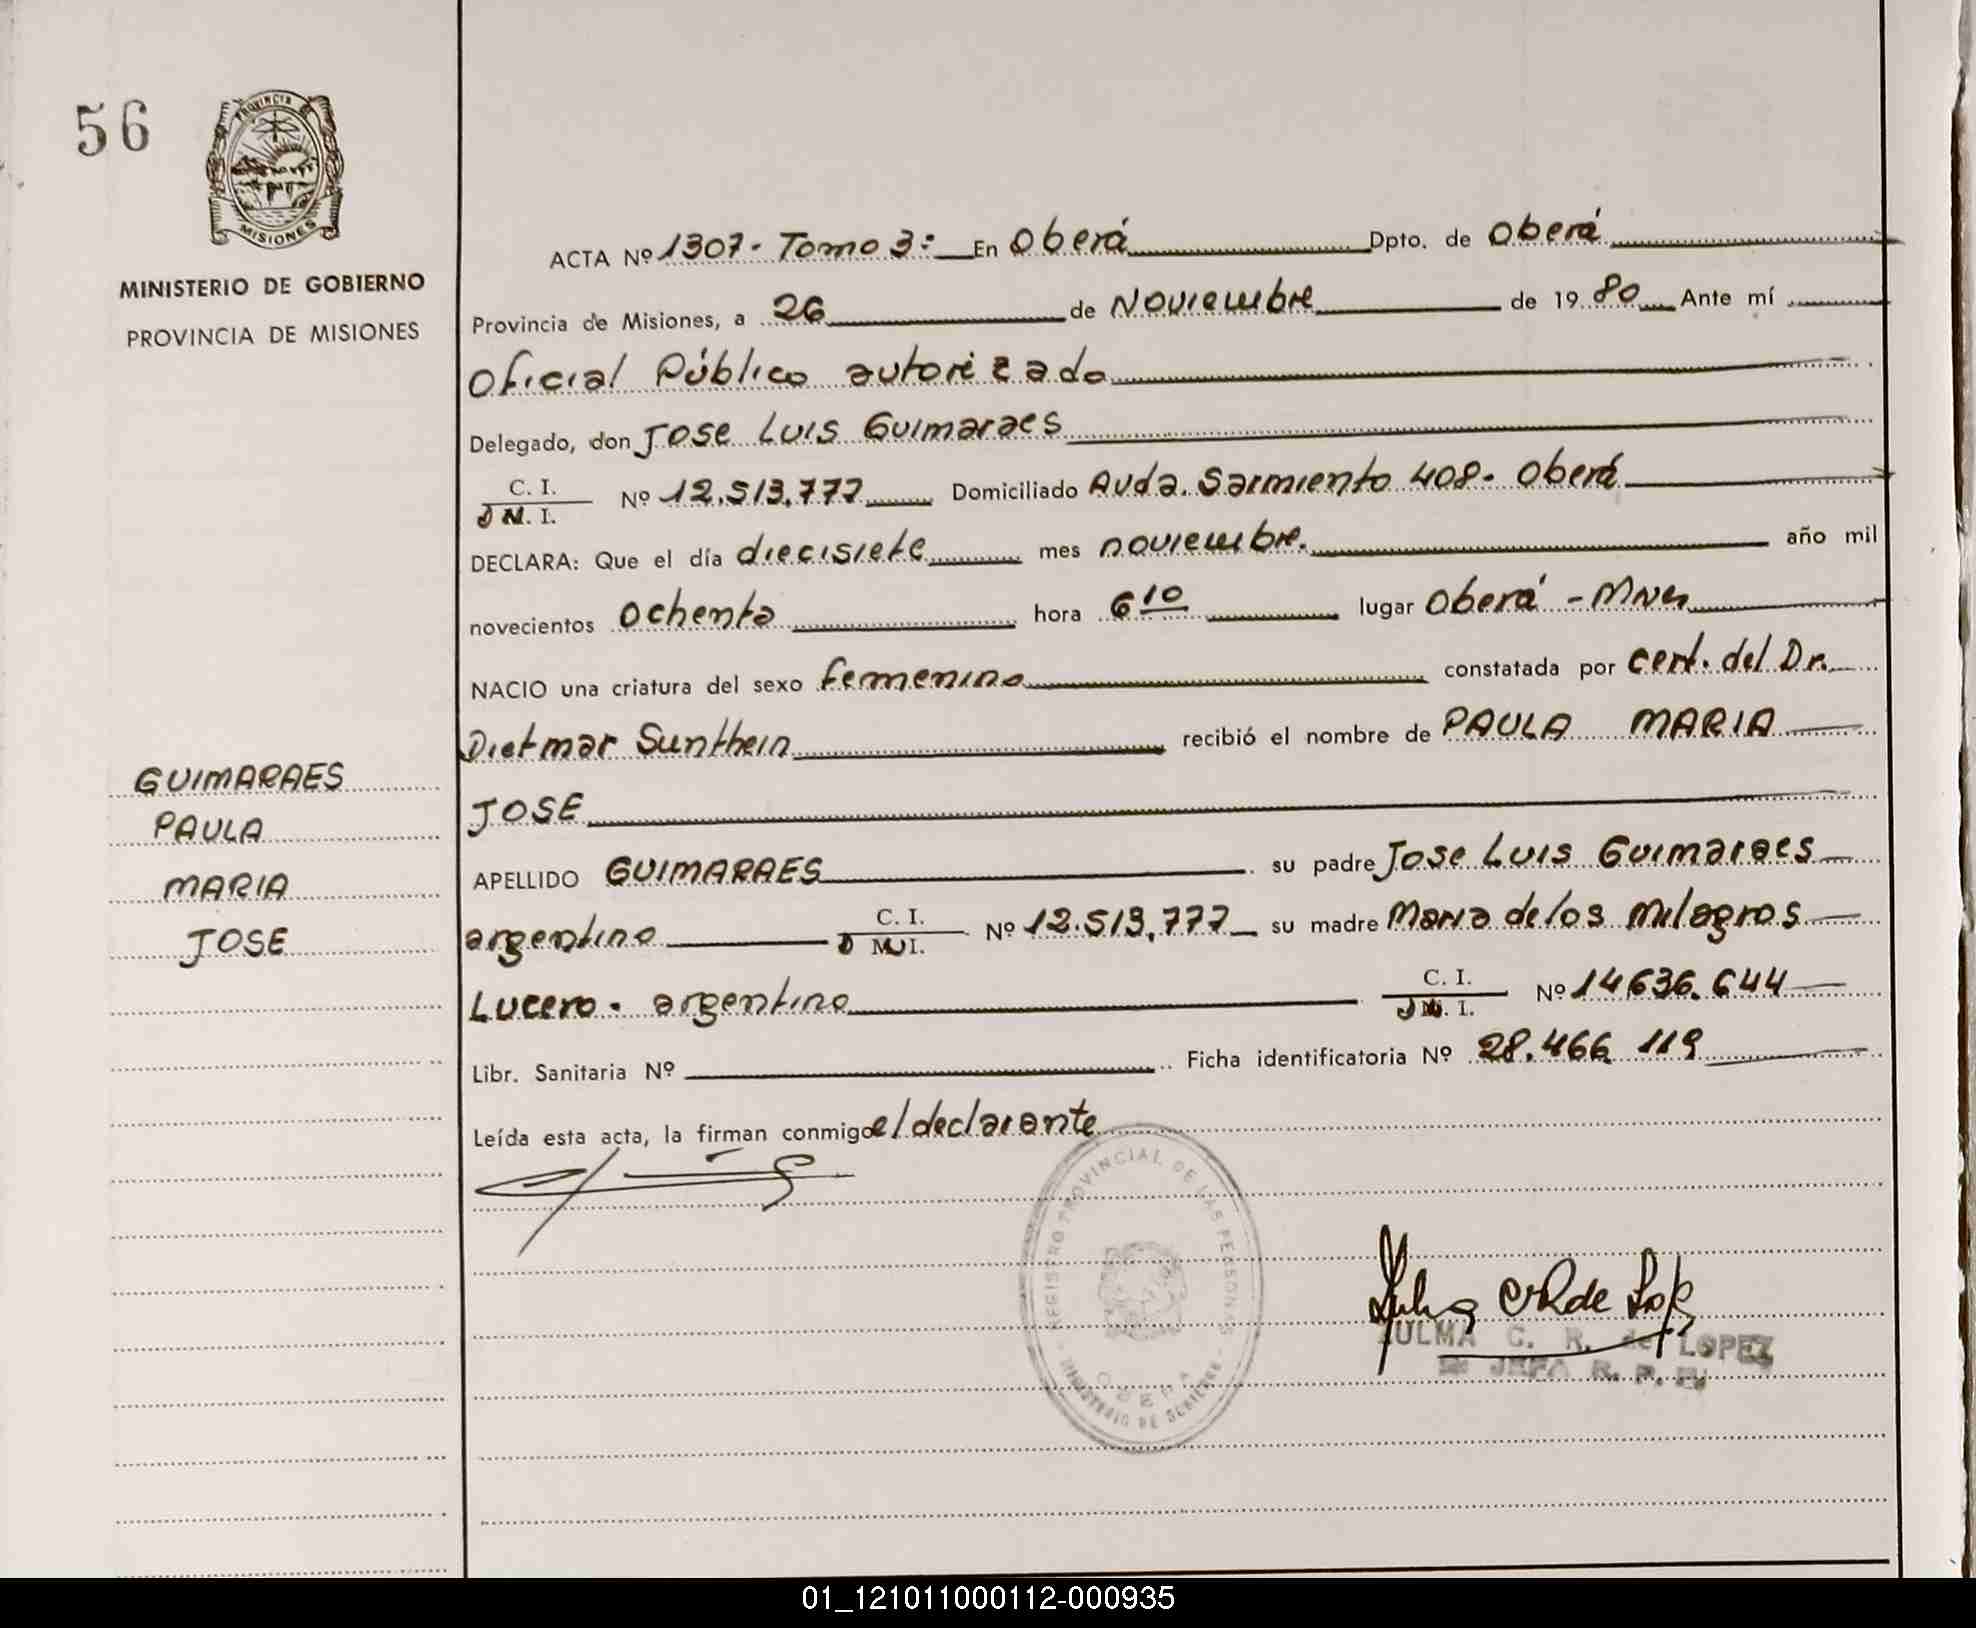 56
PROVINCIA DE
MISIONES
MINISTERIO DE GOBIERNO
PROVINCIA DE MISIONES
ACTA Nº 1307 - Tomo 3: En Oberá Dpto. de Oberá
Provincia de Misiones, a 26 de Noviembre de 19 80 Ante mí
Oficial Público autorizado
Delegado, don Jose Luis Guimaraes
C. I.
D N. I. Nº 12.513.777 Domiciliado Avda. Sarmiento 408 - Oberá
DECLARA: Que el día diecisiete mes noviembre. año mil
novecientos ochenta hora 6 10 lugar Oberá - Mnes
NACIO una criatura del sexo femenino constatada por cert. del Dr.
Dietmar Sunthein recibió el nombre de PAULA MARIA
JOSE
APELLIDO GUIMARAES su padre Jose Luis Guimaraes
argentino C. I. D N I. Nº 12.513.777 su madre Maria de los Milagros
Lucero - argentina C. I. D N. I. Nº 14636.644
Libr. Sanitaria Nº Ficha identificatoria Nº 28.466 119
Leída esta acta, la firman conmigo el declarante
GUIMARAES
PAULA
MARIA
JOSE
REGISTRO PROVINCIAL DE LAS PERSONAS
OBERA
MINISTERIO DE GOBIERNO
ZULMA C. R. de LOPEZ
JEFA R. P. P.
01_121011000112-000935